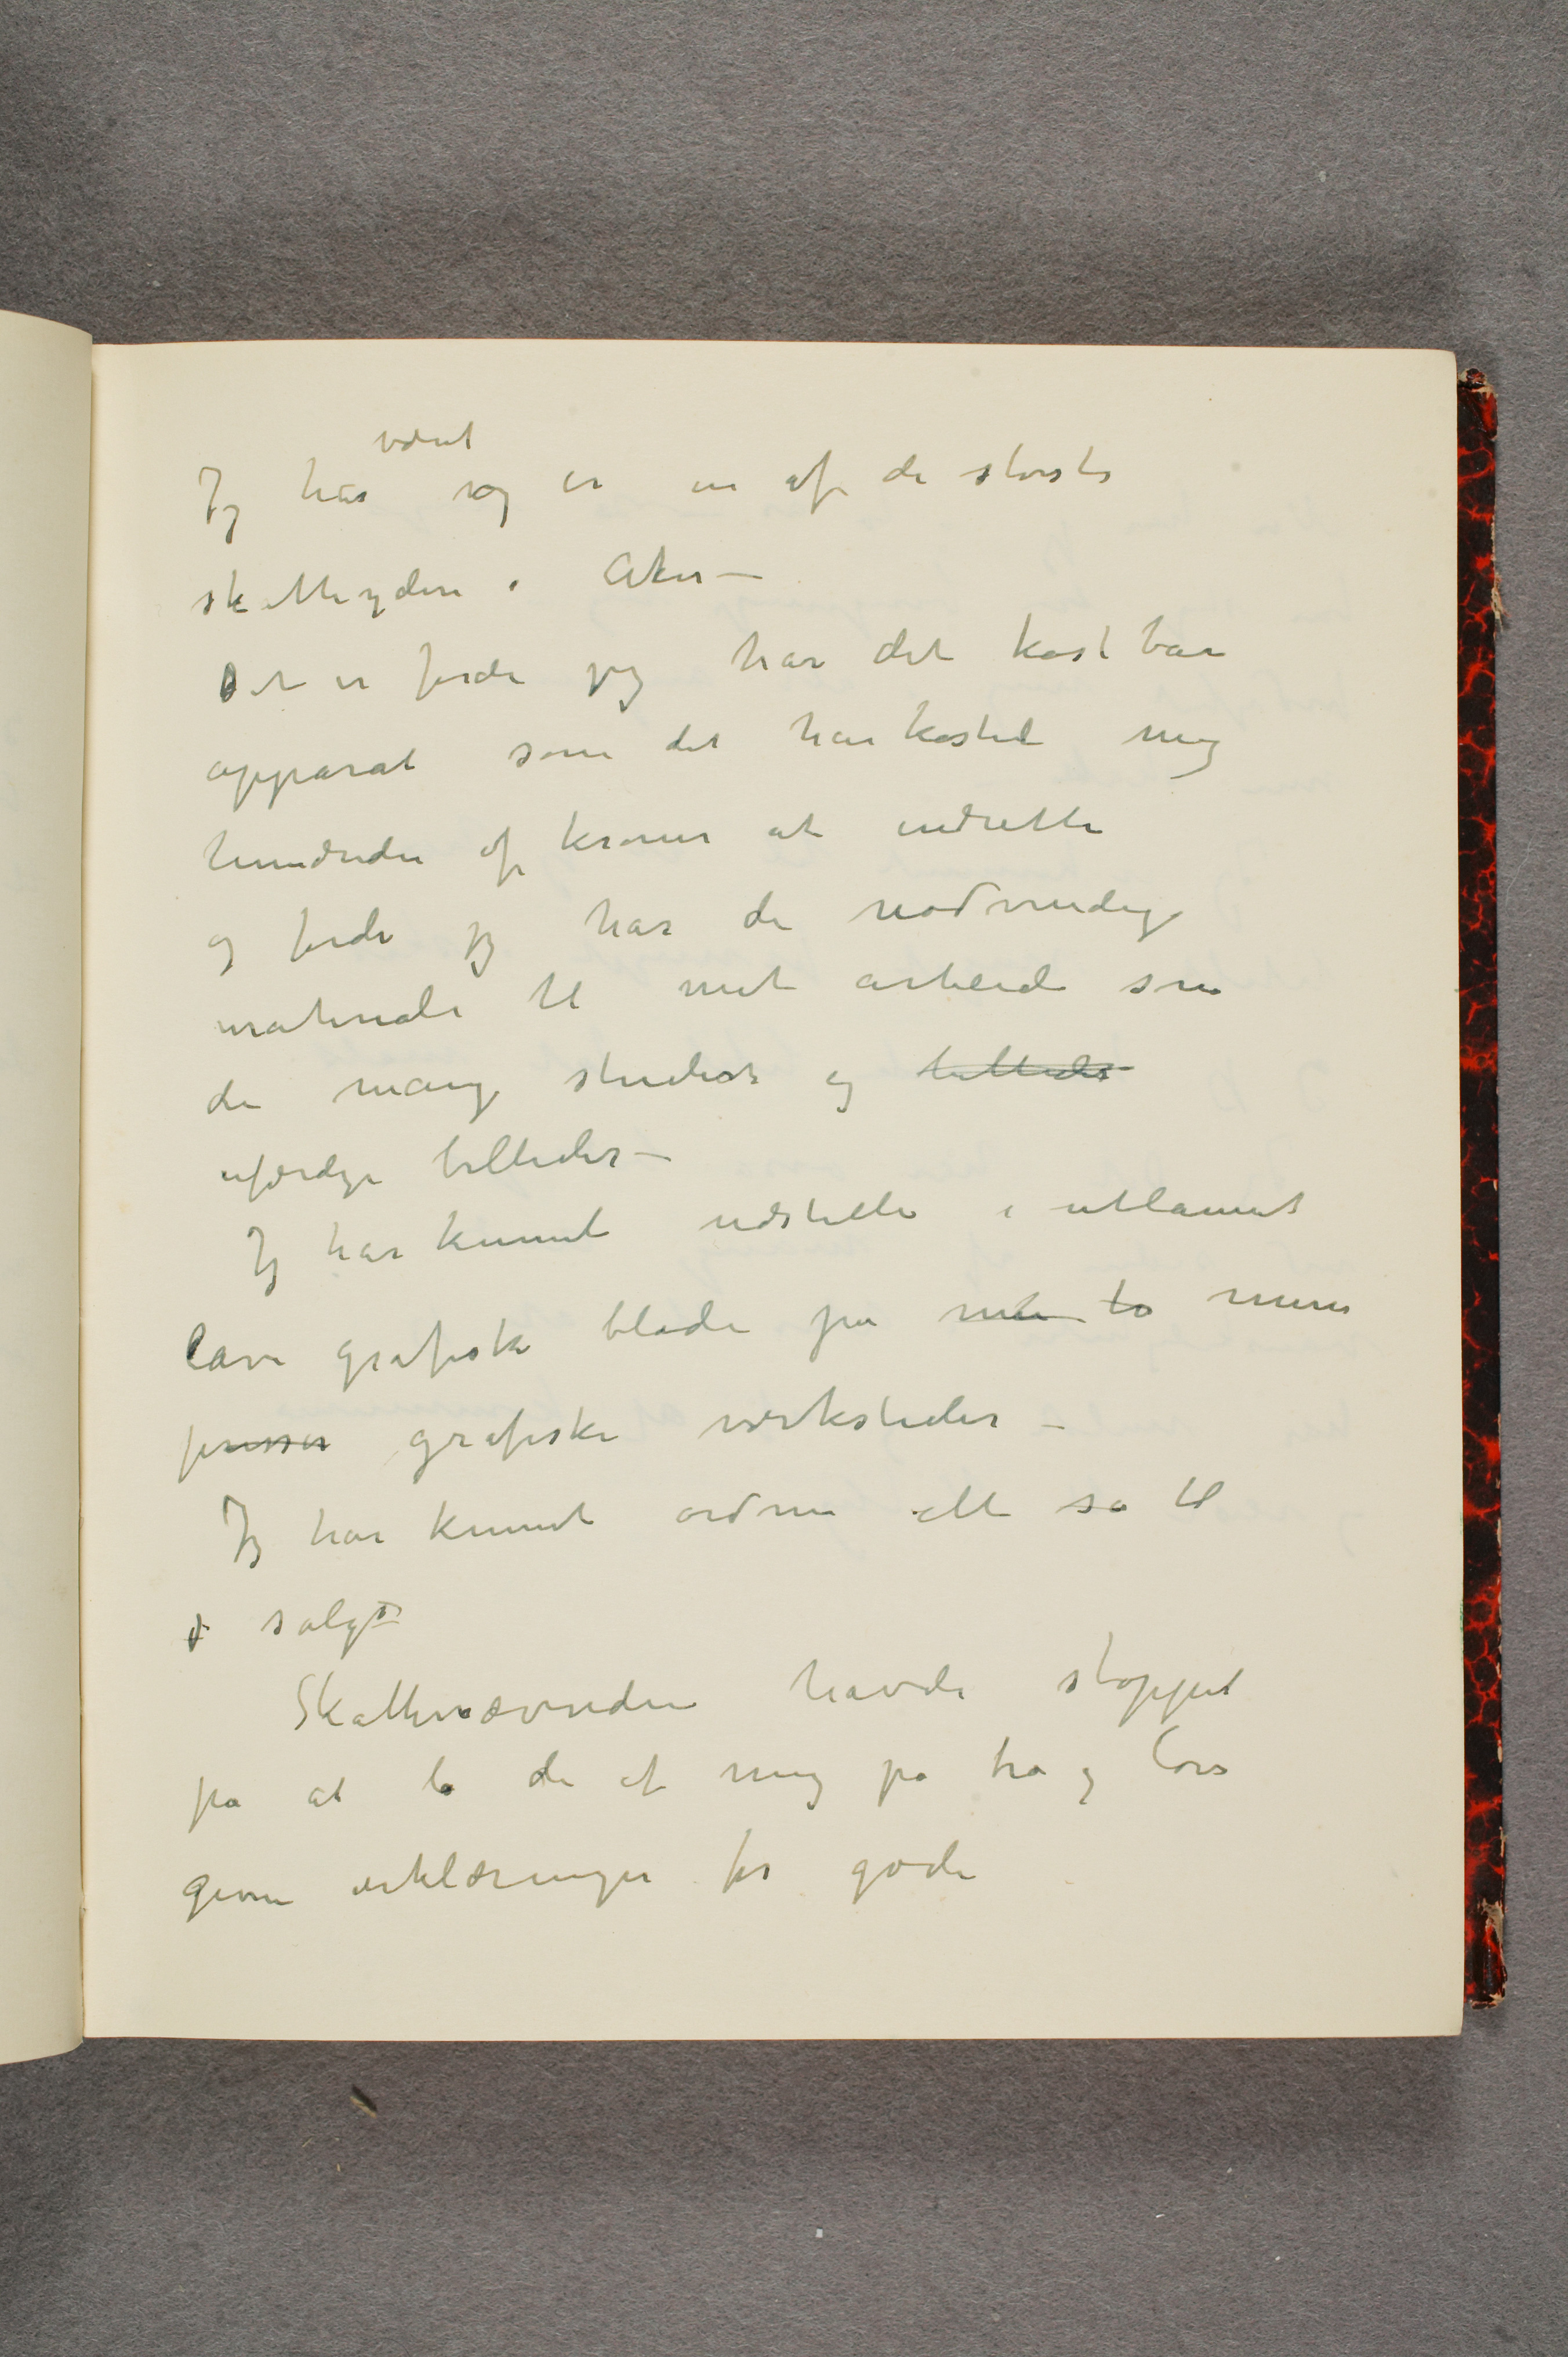 været
Jeg har og er en af de største
skatteydere i Aker –
Det er fordi jeg har det kostbare
apparat som det har kostet mig
hundreder af kroner at indrette
og fordi jeg har de nødvendige
materiale til mit arbeide som
de mange studier og billeder
ufærdige billeder –
Jeg har kunnet udstille i utlandet
lave grafiske blade på mine to mine
presser grafiske værksteder –
Jeg har kunnet ordne alt så til
salgs
Skattenævnden havde stoppet
på at la de af mig på tro og love
givne erklæringer for gode